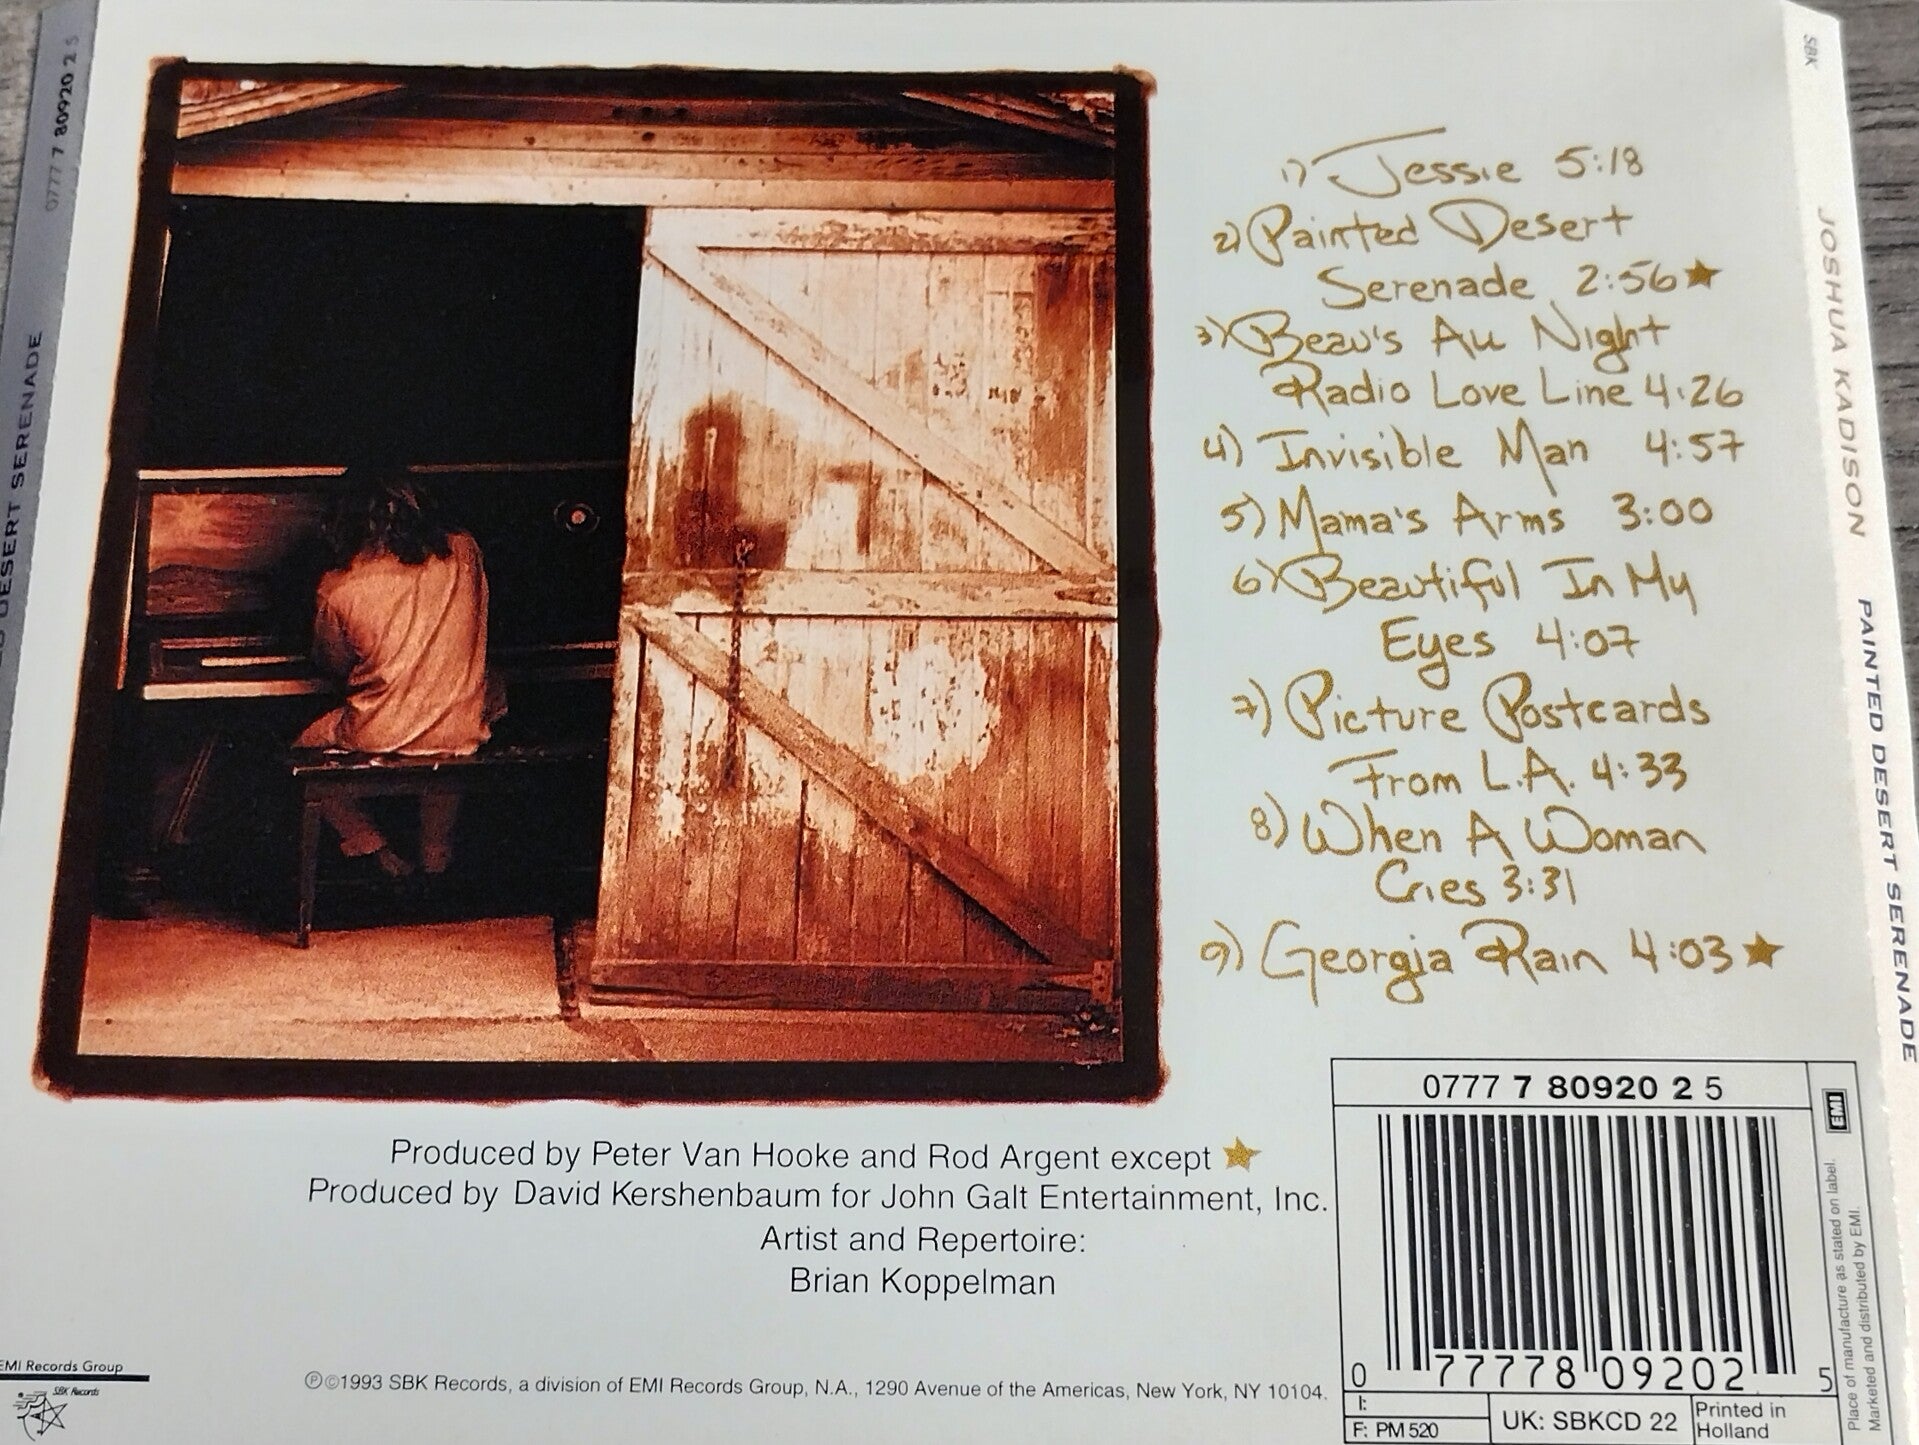 0777 7 80920 2 5
DESERT SERENADE
1) Jessie 5:18
2) Painted Desert
Serenade 2:56★
3) Beau's All Night
Radio Love Line 4:26
4) Invisible Man 4:57
5) Mama's Arms 3:00
6) Beautiful In My
Eyes 4:07
7) Picture Postcards
From L.A. 4:33
8) When A Woman
Cries 3:31
9) Georgia Rain 4:03★
SBK
JOSHUA KADISON
PAINTED DESERT SERENADE
Produced by Peter Van Hooke and Rod Argent except ★
Produced by David Kershenbaum for John Galt Entertainment, Inc.
Artist and Repertoire:
Brian Koppelman
EMI Records Group
SBK Records
℗©1993 SBK Records, a division of EMI Records Group, N.A., 1290 Avenue of the Americas, New York, NY 10104.
0777 7 80920 2 5
0 77778 09202 5
I:
F: PM 520
UK: SBKCD 22
Printed in
Holland
EMI
Place of manufacture as stated on label.
Marketed and distributed by EMI.